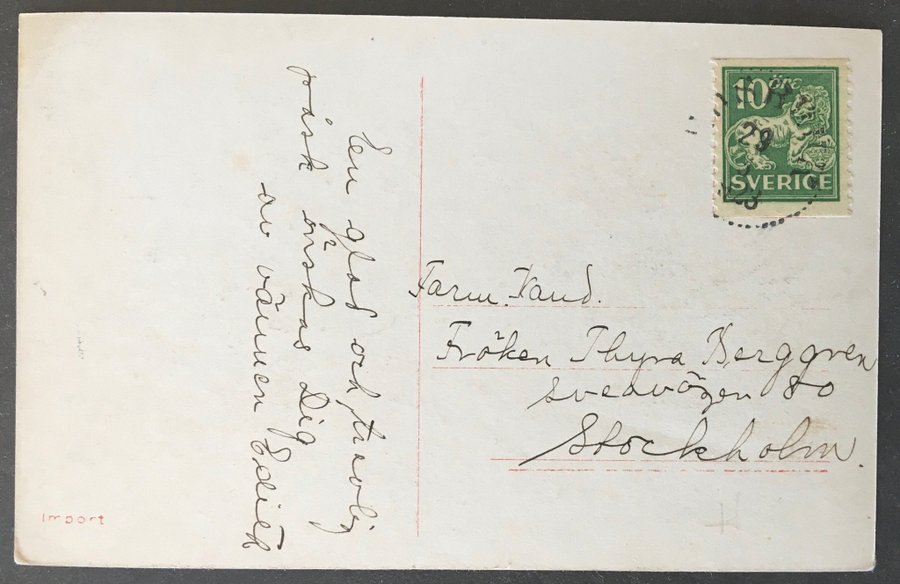 En glad och trevlig
påsk önskas Dig
av vännen Edith
10 ÖRE
SVERIGE
29
Farm. Kand.
Fröken Thyra Berggren
Sveavägen 80
Stockholm.
Import